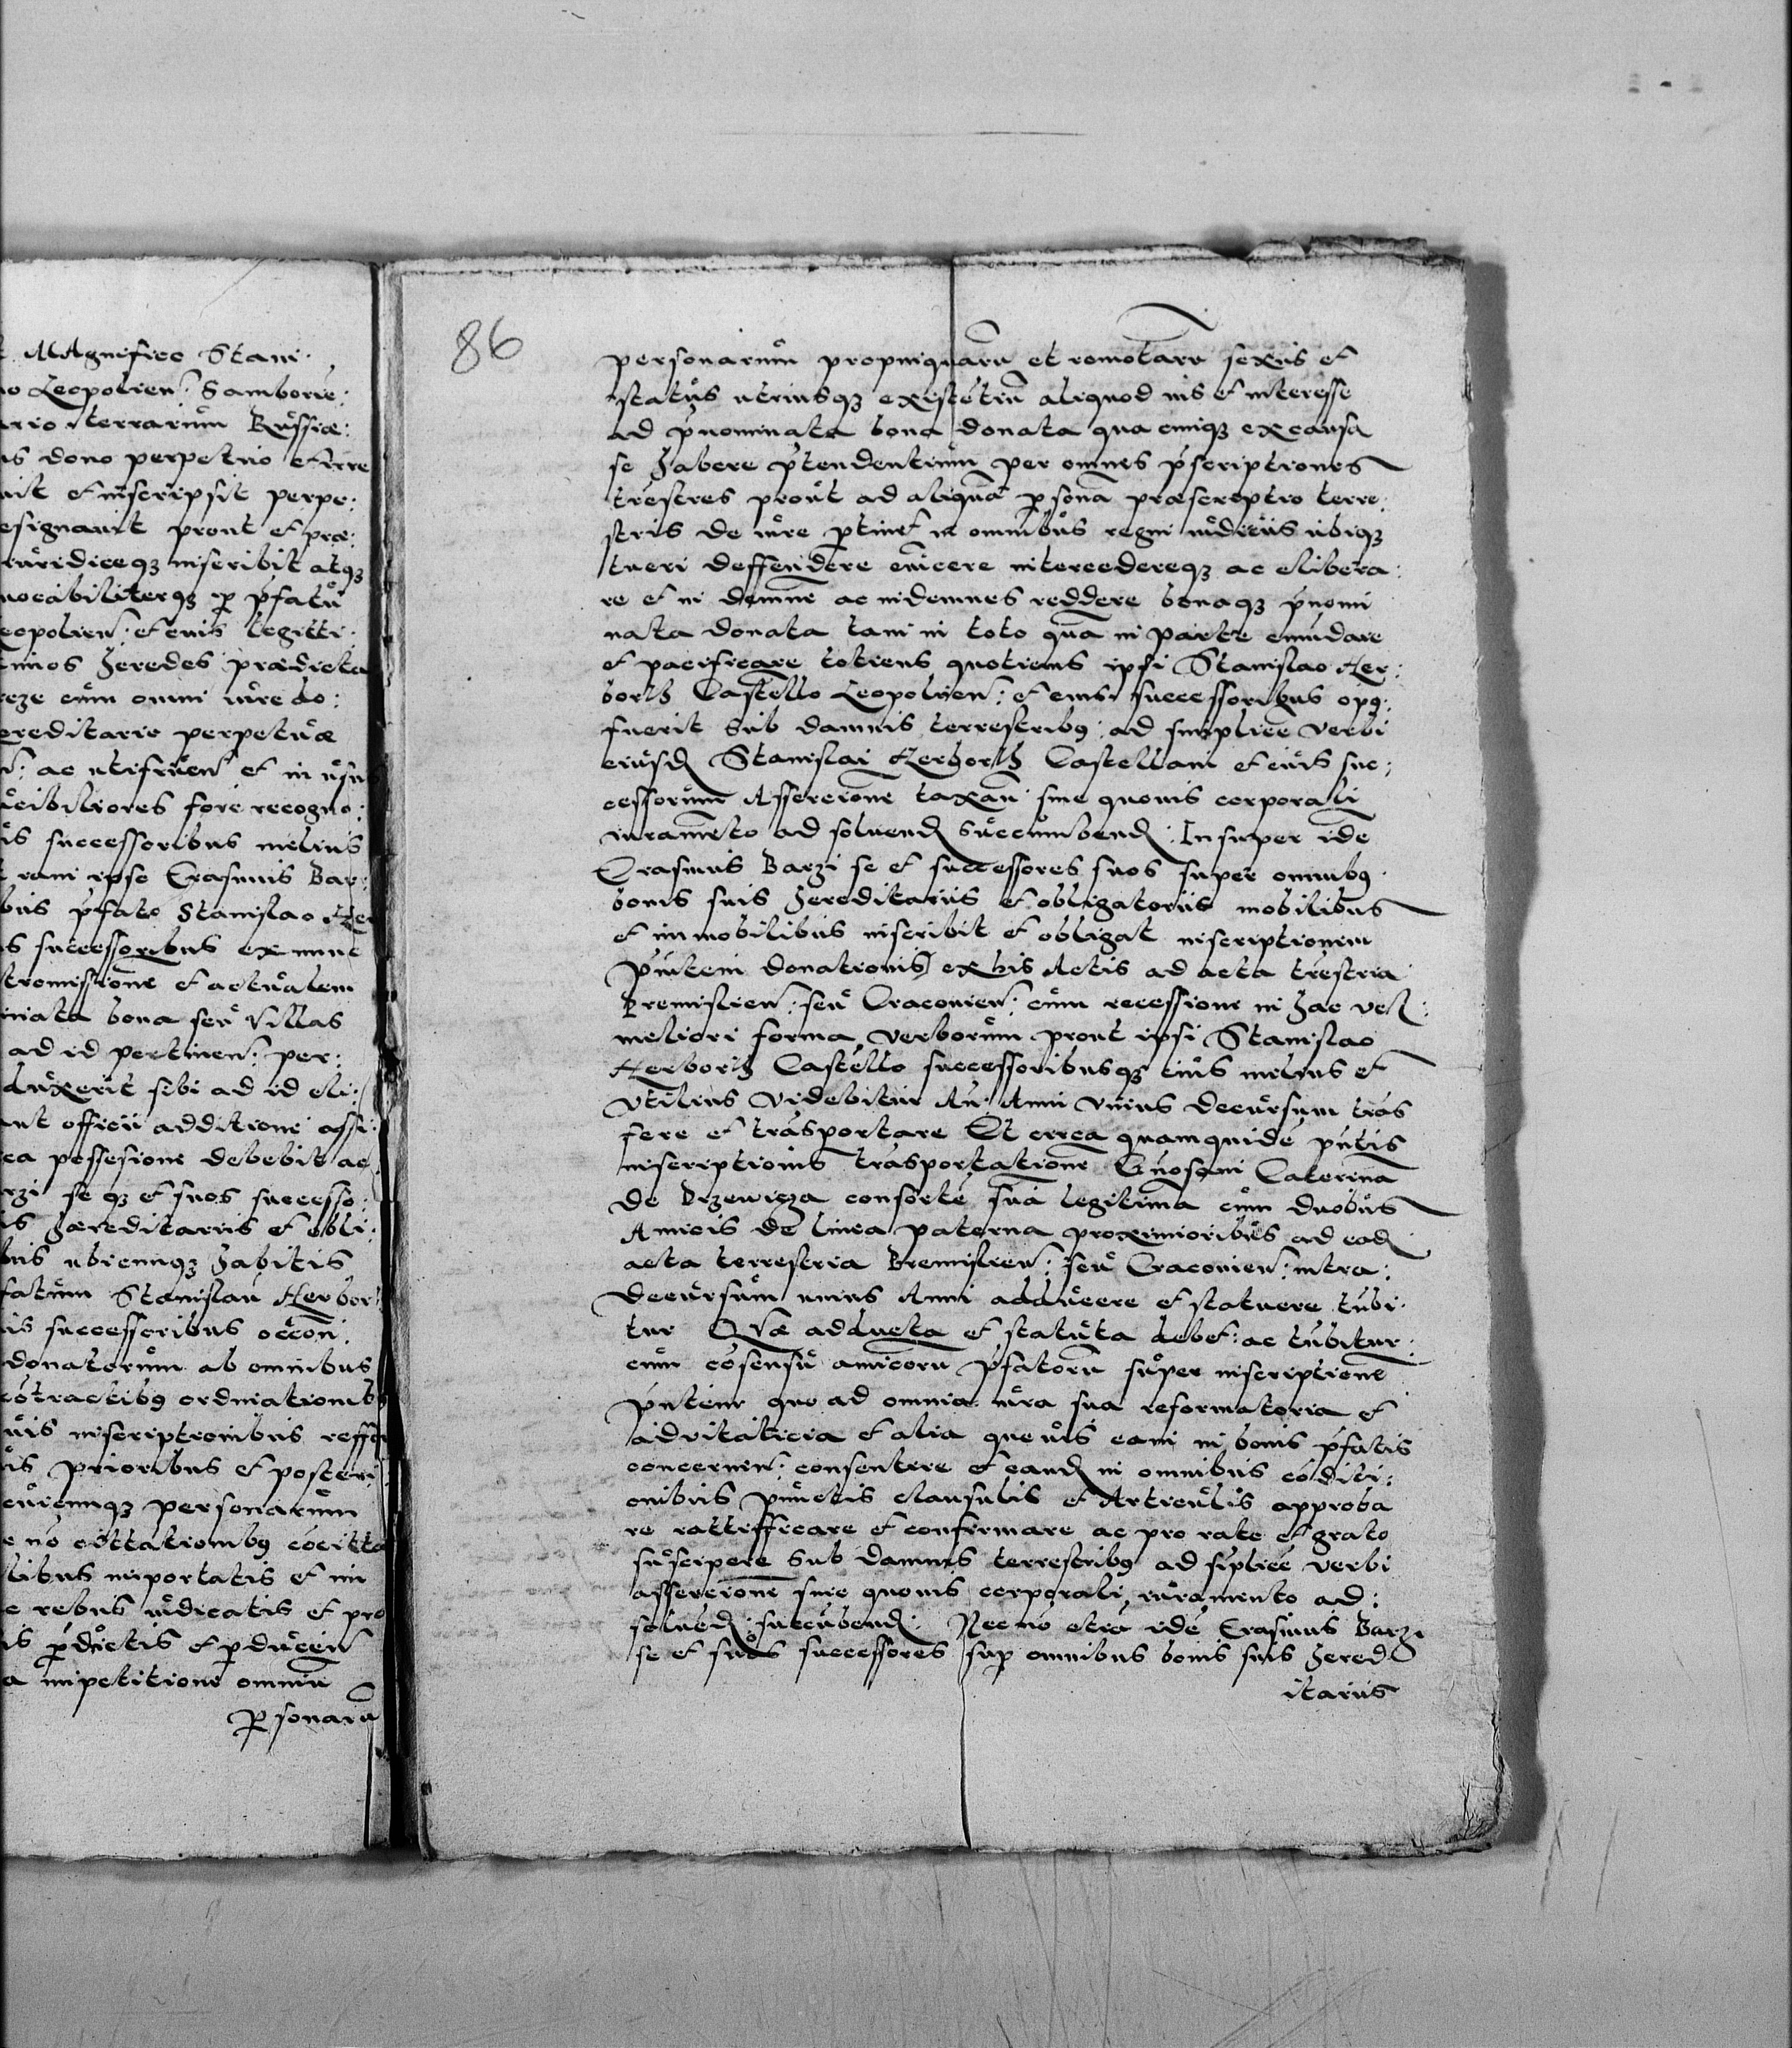 t Magnifico Stani
no Leopolien: Samborie:
ario terrarum Russiæ:
us dono perpetuo et irre
uit et inscripsit perpe:
esignauit prout et præ:
iuridiceqz inscribit atqz
uocabiliterqz p pfatu
eopolien: et euis legitti
imos heredes prædicta
reze cum omni iure do:
ereditario perpetuæ
n: ac utifruen et in usu
ucibiliores fore recogno:
is successoribus melius
t iam ipse Erasmus Bar:
bus pfato Stanislao Her
s successoribus ex nunc
tromissione et actualem
inata bona seu villas
ad id pertinen: per:
duxerit sibi ad id eli:
ant officii additione assi:
ea possesione debebit ac
rzi se qz et suos successo:
is hæreditariis et obli:
bus ubicunqz habitis
fatum Stanislau Herbor
is successoribus occoni:
donatorum ab omnibus
cotractibus ordinationibus
uis inscriptionibus reffor
is prioribus et posteri
cuicunqz personarum
e no cittationibus cocitta
libus inportatis et in
e rebus iudicatis et pro
is pductis et pducen
a impetitione omniu
Psonaru
86
personarum propinquaru et remotaru sexus et
status utriusqz existetiu aliquod ius et interesse
ad pnominata bona donata qua cunqz ex causa
se habere ptendentium per omnes pscriptiones
trestres prout ad aliqua psona præscriptio terre:
stris de iure ptinet in omnibus regni iudiciis ubiqz
tueri deffendere euicere intercedereqz ac elibera:
re et in demne ac indemnes reddere bonaqz pnomi
nata donata tam in toto qua in parte emudare
et pacificare totiens quotiens ipsi Stanislao Her:
borth Castello Leopolien: et eius successoribus opq:
fuerit sub damnis terrestribq: ad simplice verbi
eiusd Stanislai Herborth Castellani et euis suc:
cessorum Assercione taxan sine quouis corporali
iuramento ad soluend succumbend: Insuper ide
Erasmus Barzi se et successores suos super omnibq
bonis suis hereditariis et obligatoriis mobilibus
et inmobilibus inscribit et obligat inscriptionem
pntem donationis ex his Actis ad acta trestria
Premislien: seu Cracovien: cum recessione in hac vel:
meliori forma verborum prout ipsi Stanislao
Herborth Castello successoribusqz euis melius et
vtilius videbitur An: Anni vnius decursum tras
fere et trasportare Et circa quamquide pntis
inscriptionis trasportatione Gnosam Caterina
de Brzewicza consorte sua legitima cum duobus
Amicis de linea paterna proximioribus ad ead
acta terrestria Premislien: seu Cracovien: intra:
decursum unius Anni adducere et statuere tubi
tur Quæ adducta et statuta debet: ac tubitur:
cum cosensu amicoru pfatoru super inscriptione
pntem quo ad omnia iura sua reformatoria et
advitaticia et alia queuis eam in bonis pfatis
concernen: consentire et eand in omnibus coditi:
onibus punctis clausulis et Articulis approba
re rattifficare et confirmare ac pro rate et grato
suscipere sub damnis terrestribq ad siplice verbi
assercione sine quouis corporali iuramento ad:
solued: succubend: Necno etia ide Erasmus Barzi
se et suos successores sup omnibus bonis suis hered
itariis